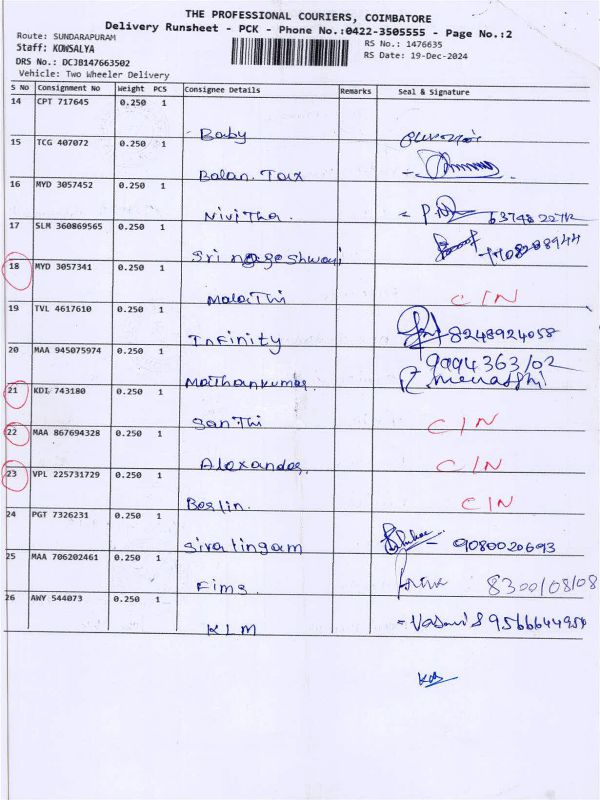 THE PROFESSIONAL COURIERS, COIMBATORE
Delivery Runsheet - PCK - Phone No.:0422-3505555 - Page No.:2
Route: SUNDARAPURAM
RS No.: 1476635
Staff: KOWSALYA
RS Date: 19-Dec-2024
DRS No.: DCJB147663502
Vehicle: Two Wheeler Delivery
S No Consignment No Weight PCS Consignee Details Remarks Seal & Signature
14 CPT 717645 0.250 1
Baby
15 TCG 407072 0.250 1
Balan. Tax
16 MYD 3057452 0.250 1
Nivitha.
17 SLM 360869565 0.250 1
Sri nageshwari
18 MYD 3057341 0.250 1
Malathi C/N
19 TVL 4617610 0.250 1
Infinity 8248924058
20 MAA 945075974 0.250 1
9994363102
Mathankumar
21 KDI 743180 0.250 1
Santhi C/N
22 MAA 867694328 0.250 1
Alexander. C/N
23 VPL 225731729 0.250 1
Berlin. C/N
24 PGT 7326231 0.250 1
Sivalingam 9080020693
25 MAA 706202461 0.250 1
Fims. 8300108108
26 AWY 544073 0.250 1
KLM